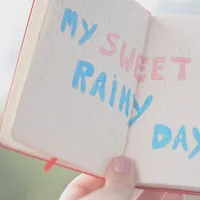 MY SWEET
RAINY
DAY